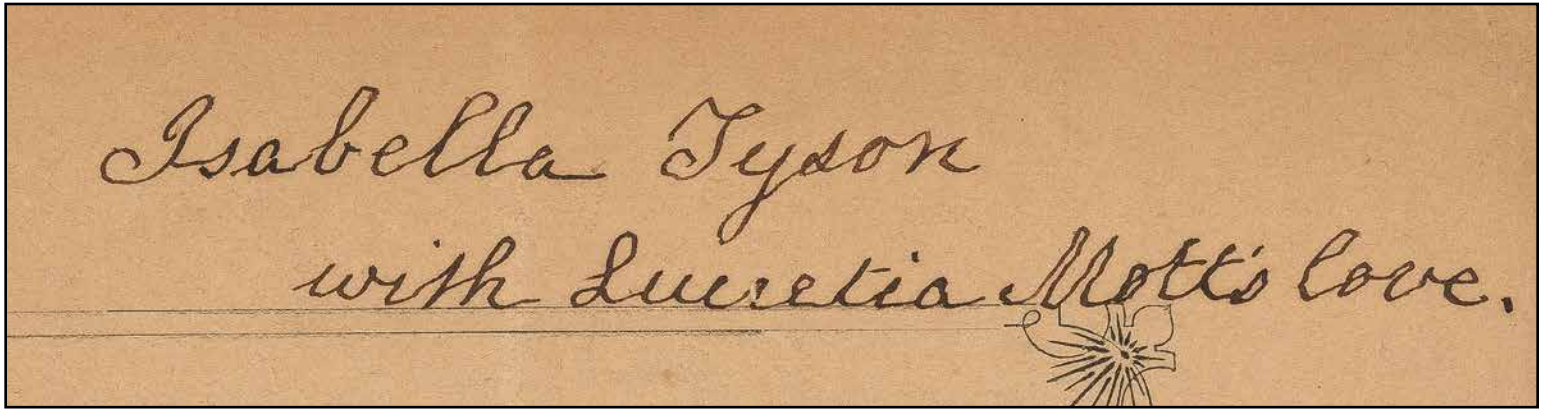 Isabella Tyson
with Lucretia Mott's love.